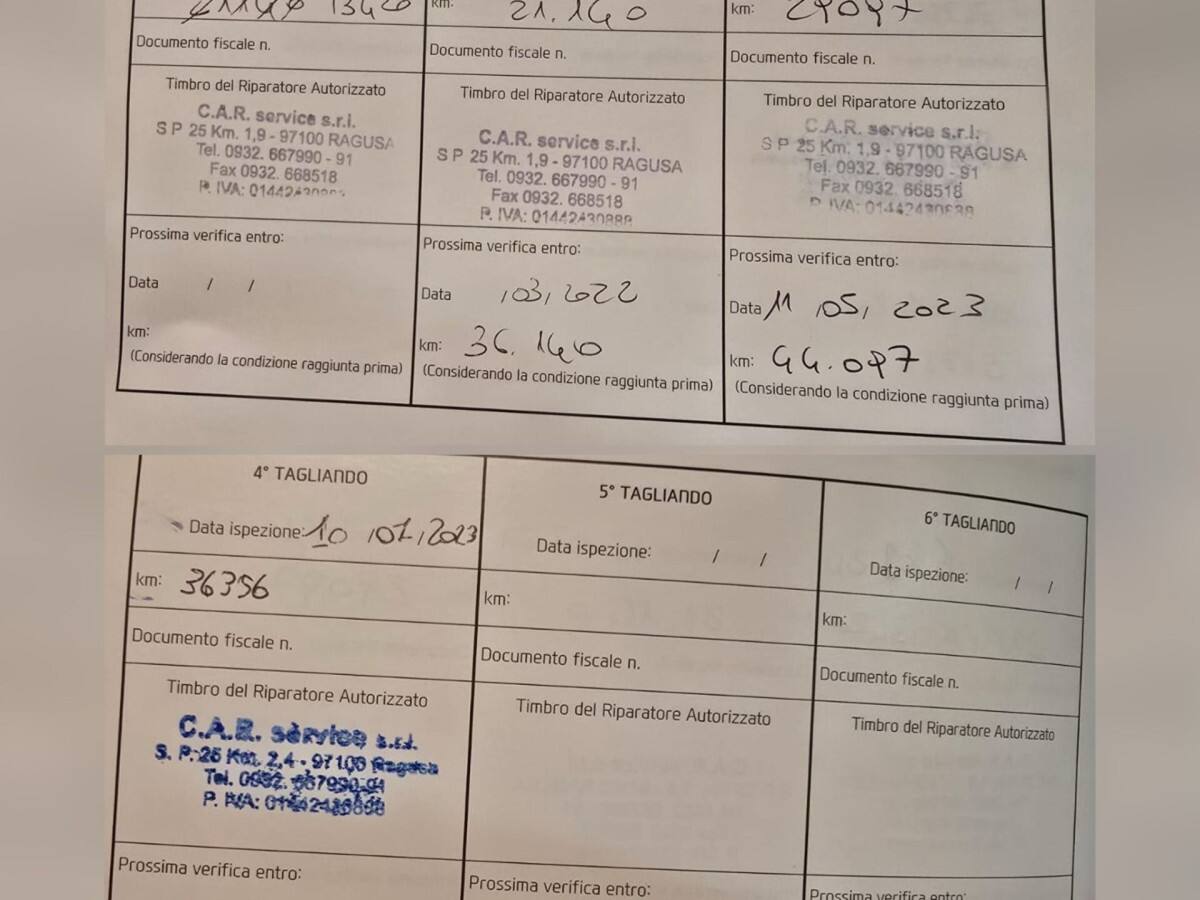 13420
km: 21.140
km: 29097
Documento fiscale n.
Documento fiscale n.
Documento fiscale n.
Timbro del Riparatore Autorizzato
C.A.R. service s.r.l.
S P 25 Km. 1,9 - 97100 RAGUSA
Tel. 0932. 667990 - 91
Fax 0932. 668518
P. IVA:
Timbro del Riparatore Autorizzato
C.A.R. service s.r.l.
S P 25 Km. 1,9 - 97100 RAGUSA
Tel. 0932. 667990 - 91
Fax 0932. 668518
P. IVA: 01442430888
Timbro del Riparatore Autorizzato
C.A.R. service s.r.l.
S P 25 Km. 1,9 - 97100 RAGUSA
Tel. 0932. 667990 - 91
Fax 0932. 668518
P. IVA:
Prossima verifica entro:
Data / /
km:
(Considerando la condizione raggiunta prima)
Prossima verifica entro:
Data /03/2022
km: 36.140
(Considerando la condizione raggiunta prima)
Prossima verifica entro:
Data 11/05/2023
km: 44.097
(Considerando la condizione raggiunta prima)
4° TAGLIANDO
Data ispezione: 10/07/2023
km: 36356
Documento fiscale n.
Timbro del Riparatore Autorizzato
C.A.R. service s.r.l.
S. P. 25 Km. 2,4 - 97100 Ragusa
Tel. 0932. 667990-91
P. IVA:
Prossima verifica entro:
5° TAGLIANDO
Data ispezione: / /
km:
Documento fiscale n.
Timbro del Riparatore Autorizzato
Prossima verifica entro:
6° TAGLIANDO
Data ispezione: / /
km:
Documento fiscale n.
Timbro del Riparatore Autorizzato
Prossima verifica entro: